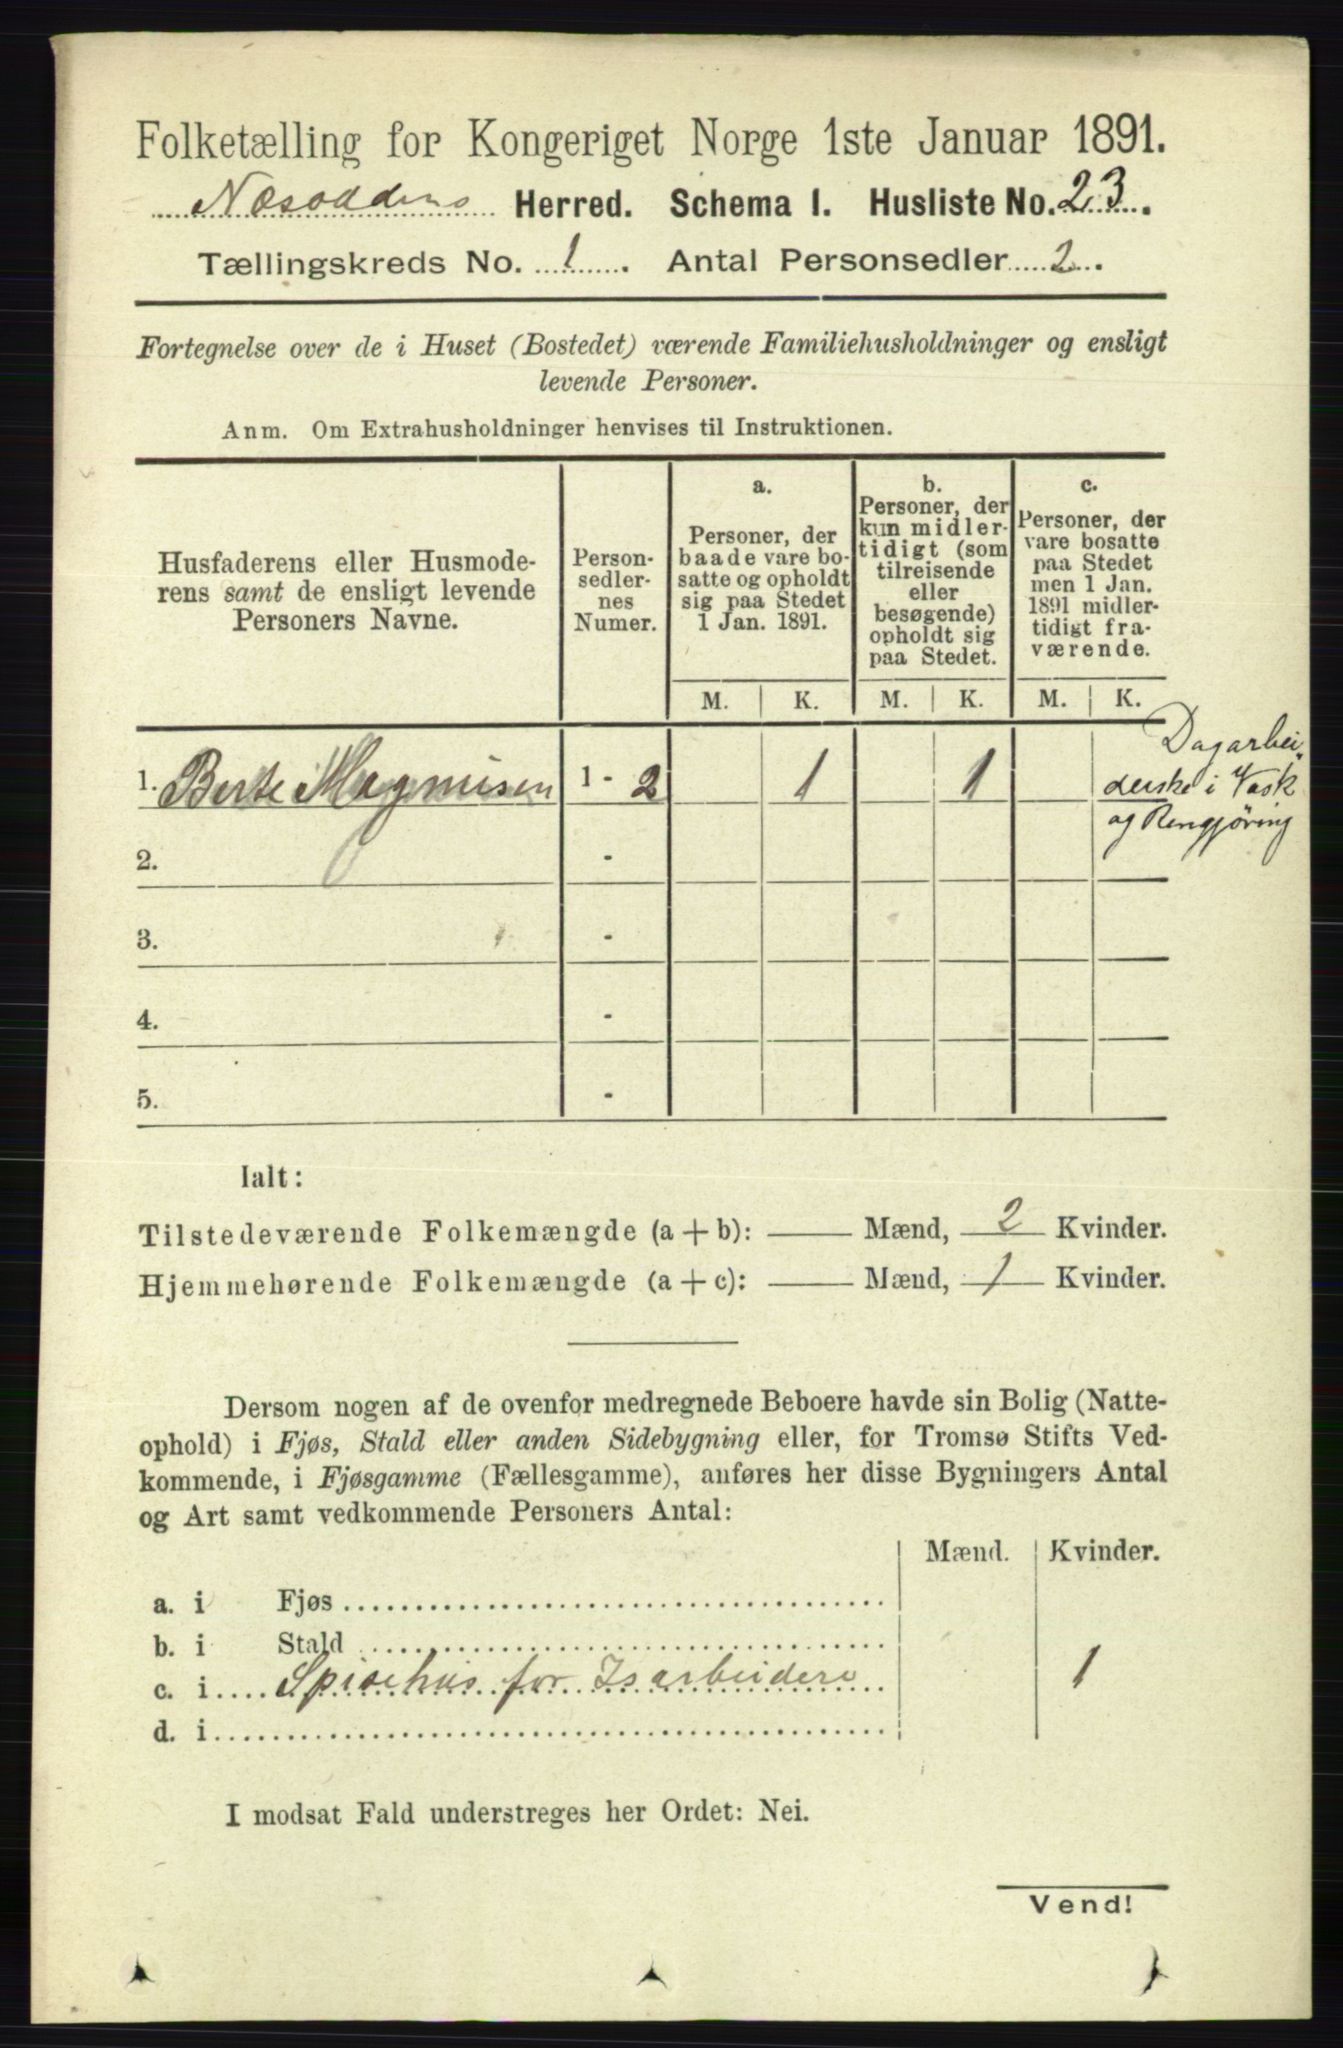 Folketælling for Kongeriget Norge 1ste Januar 1891.
Næsoddens Herred. Schema I. Husliste No. 23.
Tællingskreds No. 1. Antal Personsedler 2.
Fortegnelse over de i Huset (Bostedet) værende Familiehusholdninger og ensligt
levende Personer.
Anm. Om Extrahusholdninger henvises til Instruktionen.
Husfaderens eller Husmode-
rens samt de ensligt levende
Personers Navne.
Person-
sedler-
nes
Numer.
a.
Personer, der
baade vare bo-
satte og opholdt
sig paa Stedet
1 Jan. 1891.
b.
Personer, der
kun midler-
tidigt (som
tilreisende
eller
besøgende)
opholdt sig
paa Stedet.
c.
Personer, der
vare bosatte
paa Stedet
men 1 Jan.
1891 midler-
tidigt fra-
værende.
M. K. M. K. M. K.
1. Berte Magnusen 1 - 2 1 1
Dagarbei-
derske i Vask
og Rengjöring
2. -
3. -
4. -
5. -
Ialt:
Tilstedeværende Folkemængde (a + b): — Mænd, 2 Kvinder.
Hjemmehørende Folkemængde (a + c): — Mænd, 1 Kvinder.
Dersom nogen af de ovenfor medregnede Beboere havde sin Bolig (Natte-
ophold) i Fjøs, Stald eller anden Sidebygning eller, for Tromsø Stifts Ved-
kommende, i Fjøsgamme (Fællesgamme), anføres her disse Bygningers Antal
og Art samt vedkommende Personers Antal:
Mænd. Kvinder.
a. i Fjøs
b. i Stald
c. i Spisehus for Isarbeidere 1
d. i
I modsat Fald understreges her Ordet: Nei.
Vend!